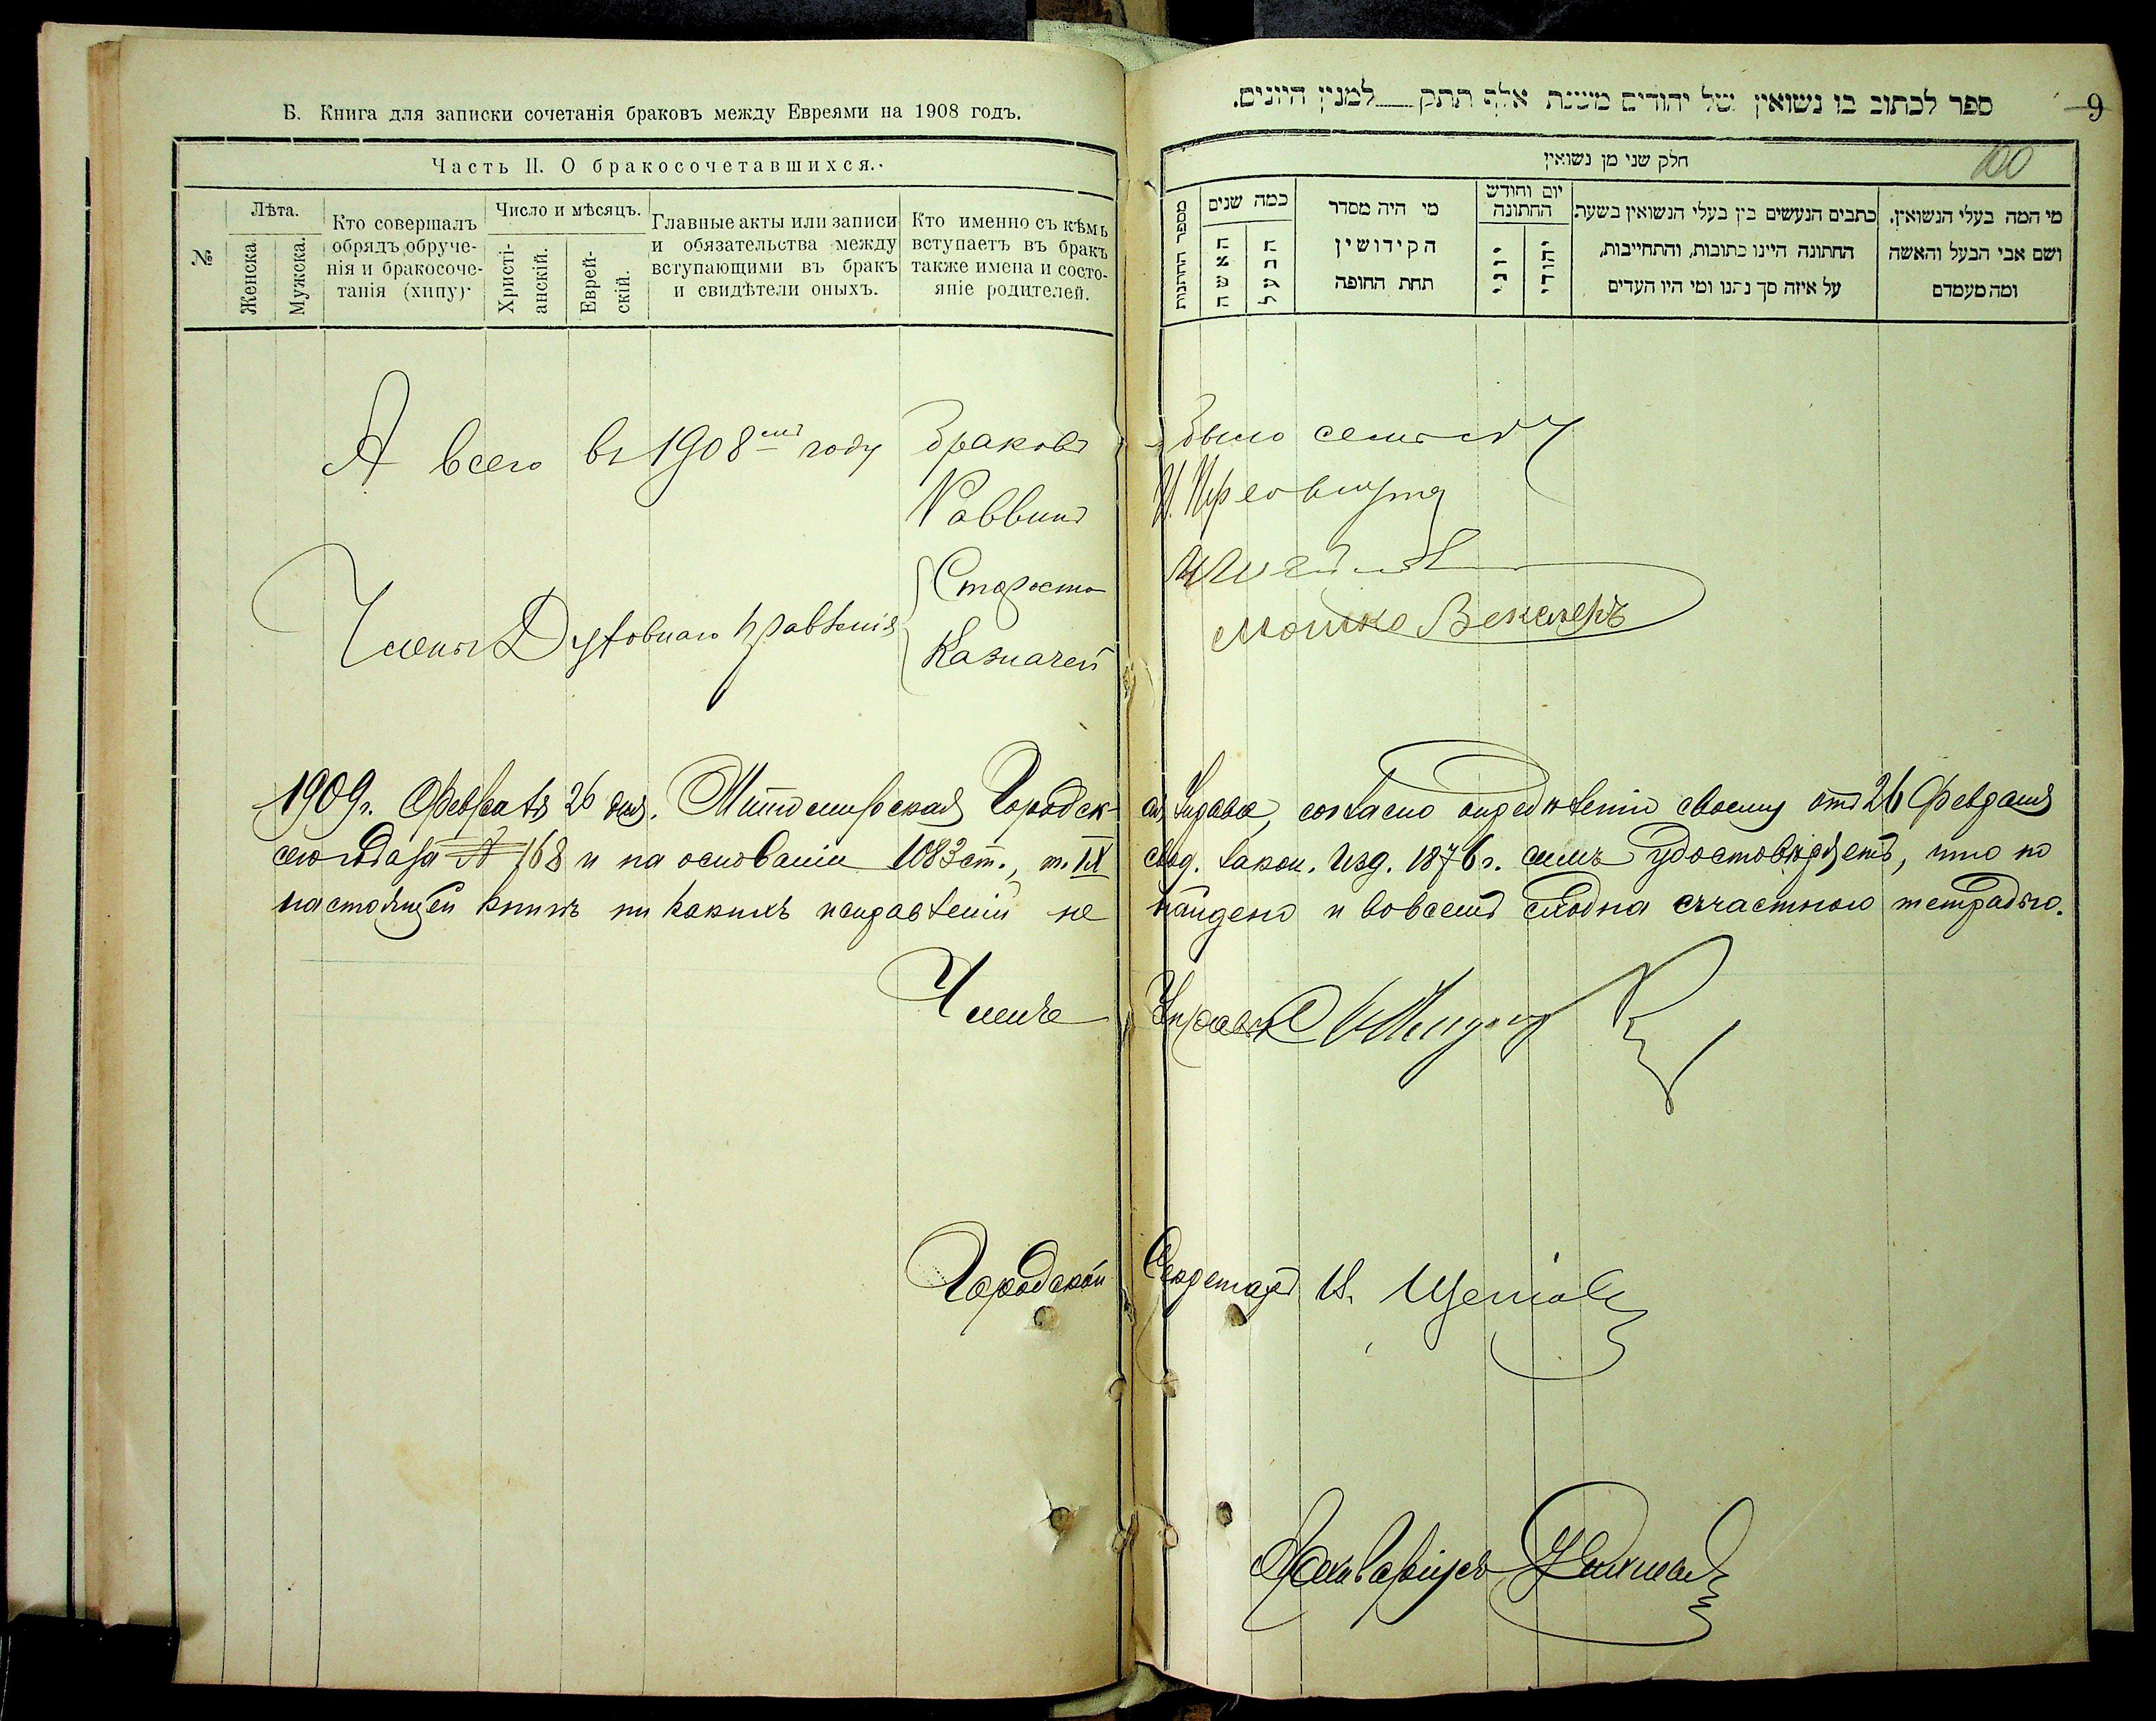 Б. Книга для записки сочетанія браковъ между Евреями на 1908 годъ.
Часть II. О бракосочетавшихся.
№
Лѣта.
Женска.
Мужска.
Кто совершалъ
обрядъ обруче-
нія и бракосоче-
танія (хипу).
Число и мѣсяцъ.
Христі-
анскій.
Еврей-
скій.
Главные акты или записи
и обязательства между
вступающими въ бракъ
и свидѣтели оныхъ.
Кто именно съ кѣмъ
вступаетъ въ бракъ
также имена и состо-
яніе родителей.
ספר לכתוב בו נשואין של יהודים משנת אלף תתק למנין היונים.
9
100
חלק שני מן נשואין
מספר החתונות
כמה שנים
האשה
הבעל
מי היה מסדר
הקידושין
תחת החופה
יום וחודש
החתונה
יוני
יהודי
כתבים הנעשים בין בעלי הנשואין בשעת
החתונה היינו כתובות, והתחייבות,
על איזה סך נתנו ומי היו העדים
מי המה בעלי הנשואין,
ושם אבי הבעל והאשה
ומה מעמדם
А всего въ 1908мъ году браковъ было семь
Раввинъ
Члены Духовнаго правленія
Староста
Казначей Мошко Векслеръ
1909 г. Февраля 26 дня. Городск-ая Управа, согласно опредѣленію своему отъ 26 Февраля
сего года за № 168 и на основаніи 1083 ст., т. IX свод. закон. изд. 1876 г. симъ удостовѣряетъ, что по
настоящей книгѣ ни какихъ исправленій не найдено и во всемъ сходна съ частною тетрадью.
Членъ Управы
Городской Секретарь